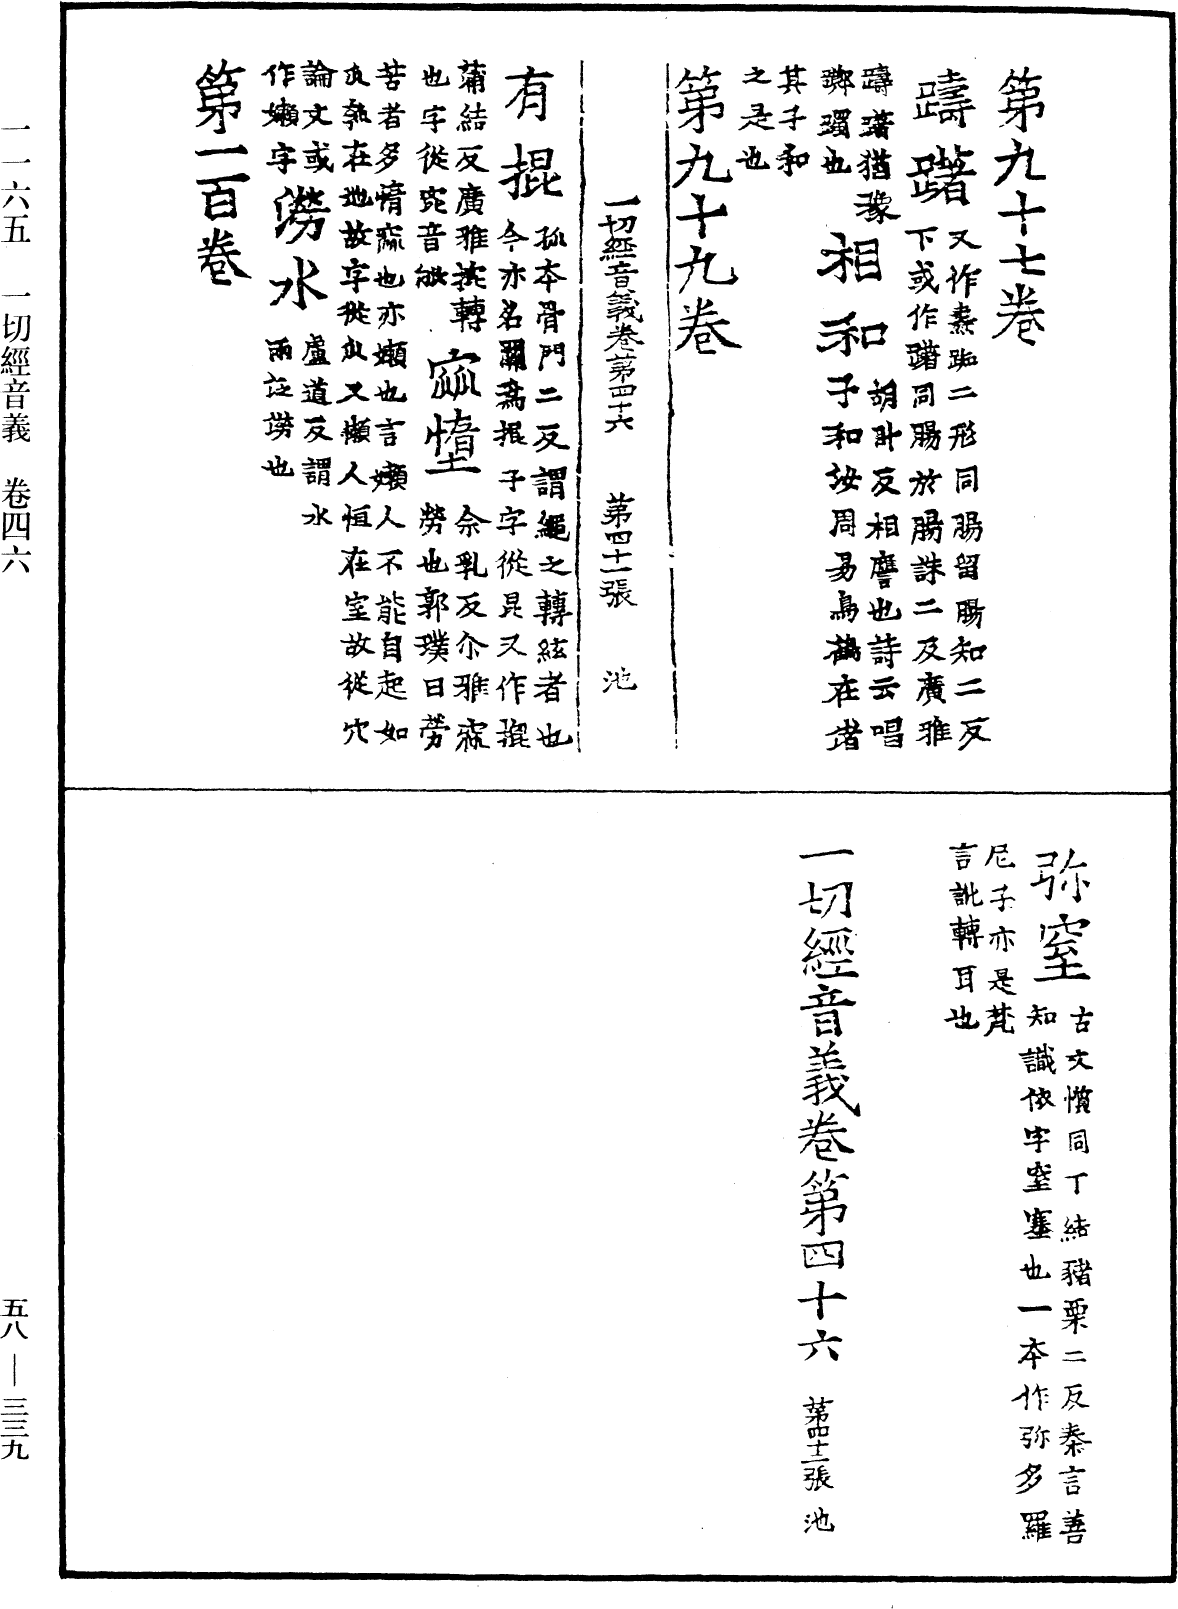 第九十七卷
躊躇 又作𢣷跱二形同腸留腸知二反
下或作躇同腸於腸誅二反廣雅
躊躇猶豫
躑躅也 相和 胡計反相譍也詩云唱
子和汝周易鳥鶴在渚
其子和
之是也
第九十九卷
一切經音義卷第四十六 第四十一張 池
有掍 孤本骨門二反謂繩之轉絃者也
今亦名關為掍子字從昆又作掍
蒲結反廣雅 轉
也字從 音 窳惰 余乳反尒雅窳
勞也郭璞曰勞
苦者多惰窳也亦嬾也言嬾人不能自起如
瓜瓠在地故字從㼌又懶人恒在室故從穴
論文或
作嬾字 澇水 盧道反謂水
雨 澇也
第一百卷
弥窒 古文懫同丁結豬栗二反秦言善
知識依字窒塞也一本作弥多羅
尼子亦是梵
言訛轉耳也
一切經音義卷第四十六 第四十二張 池
一一六五 一切經音義 卷四六
五八—三三九